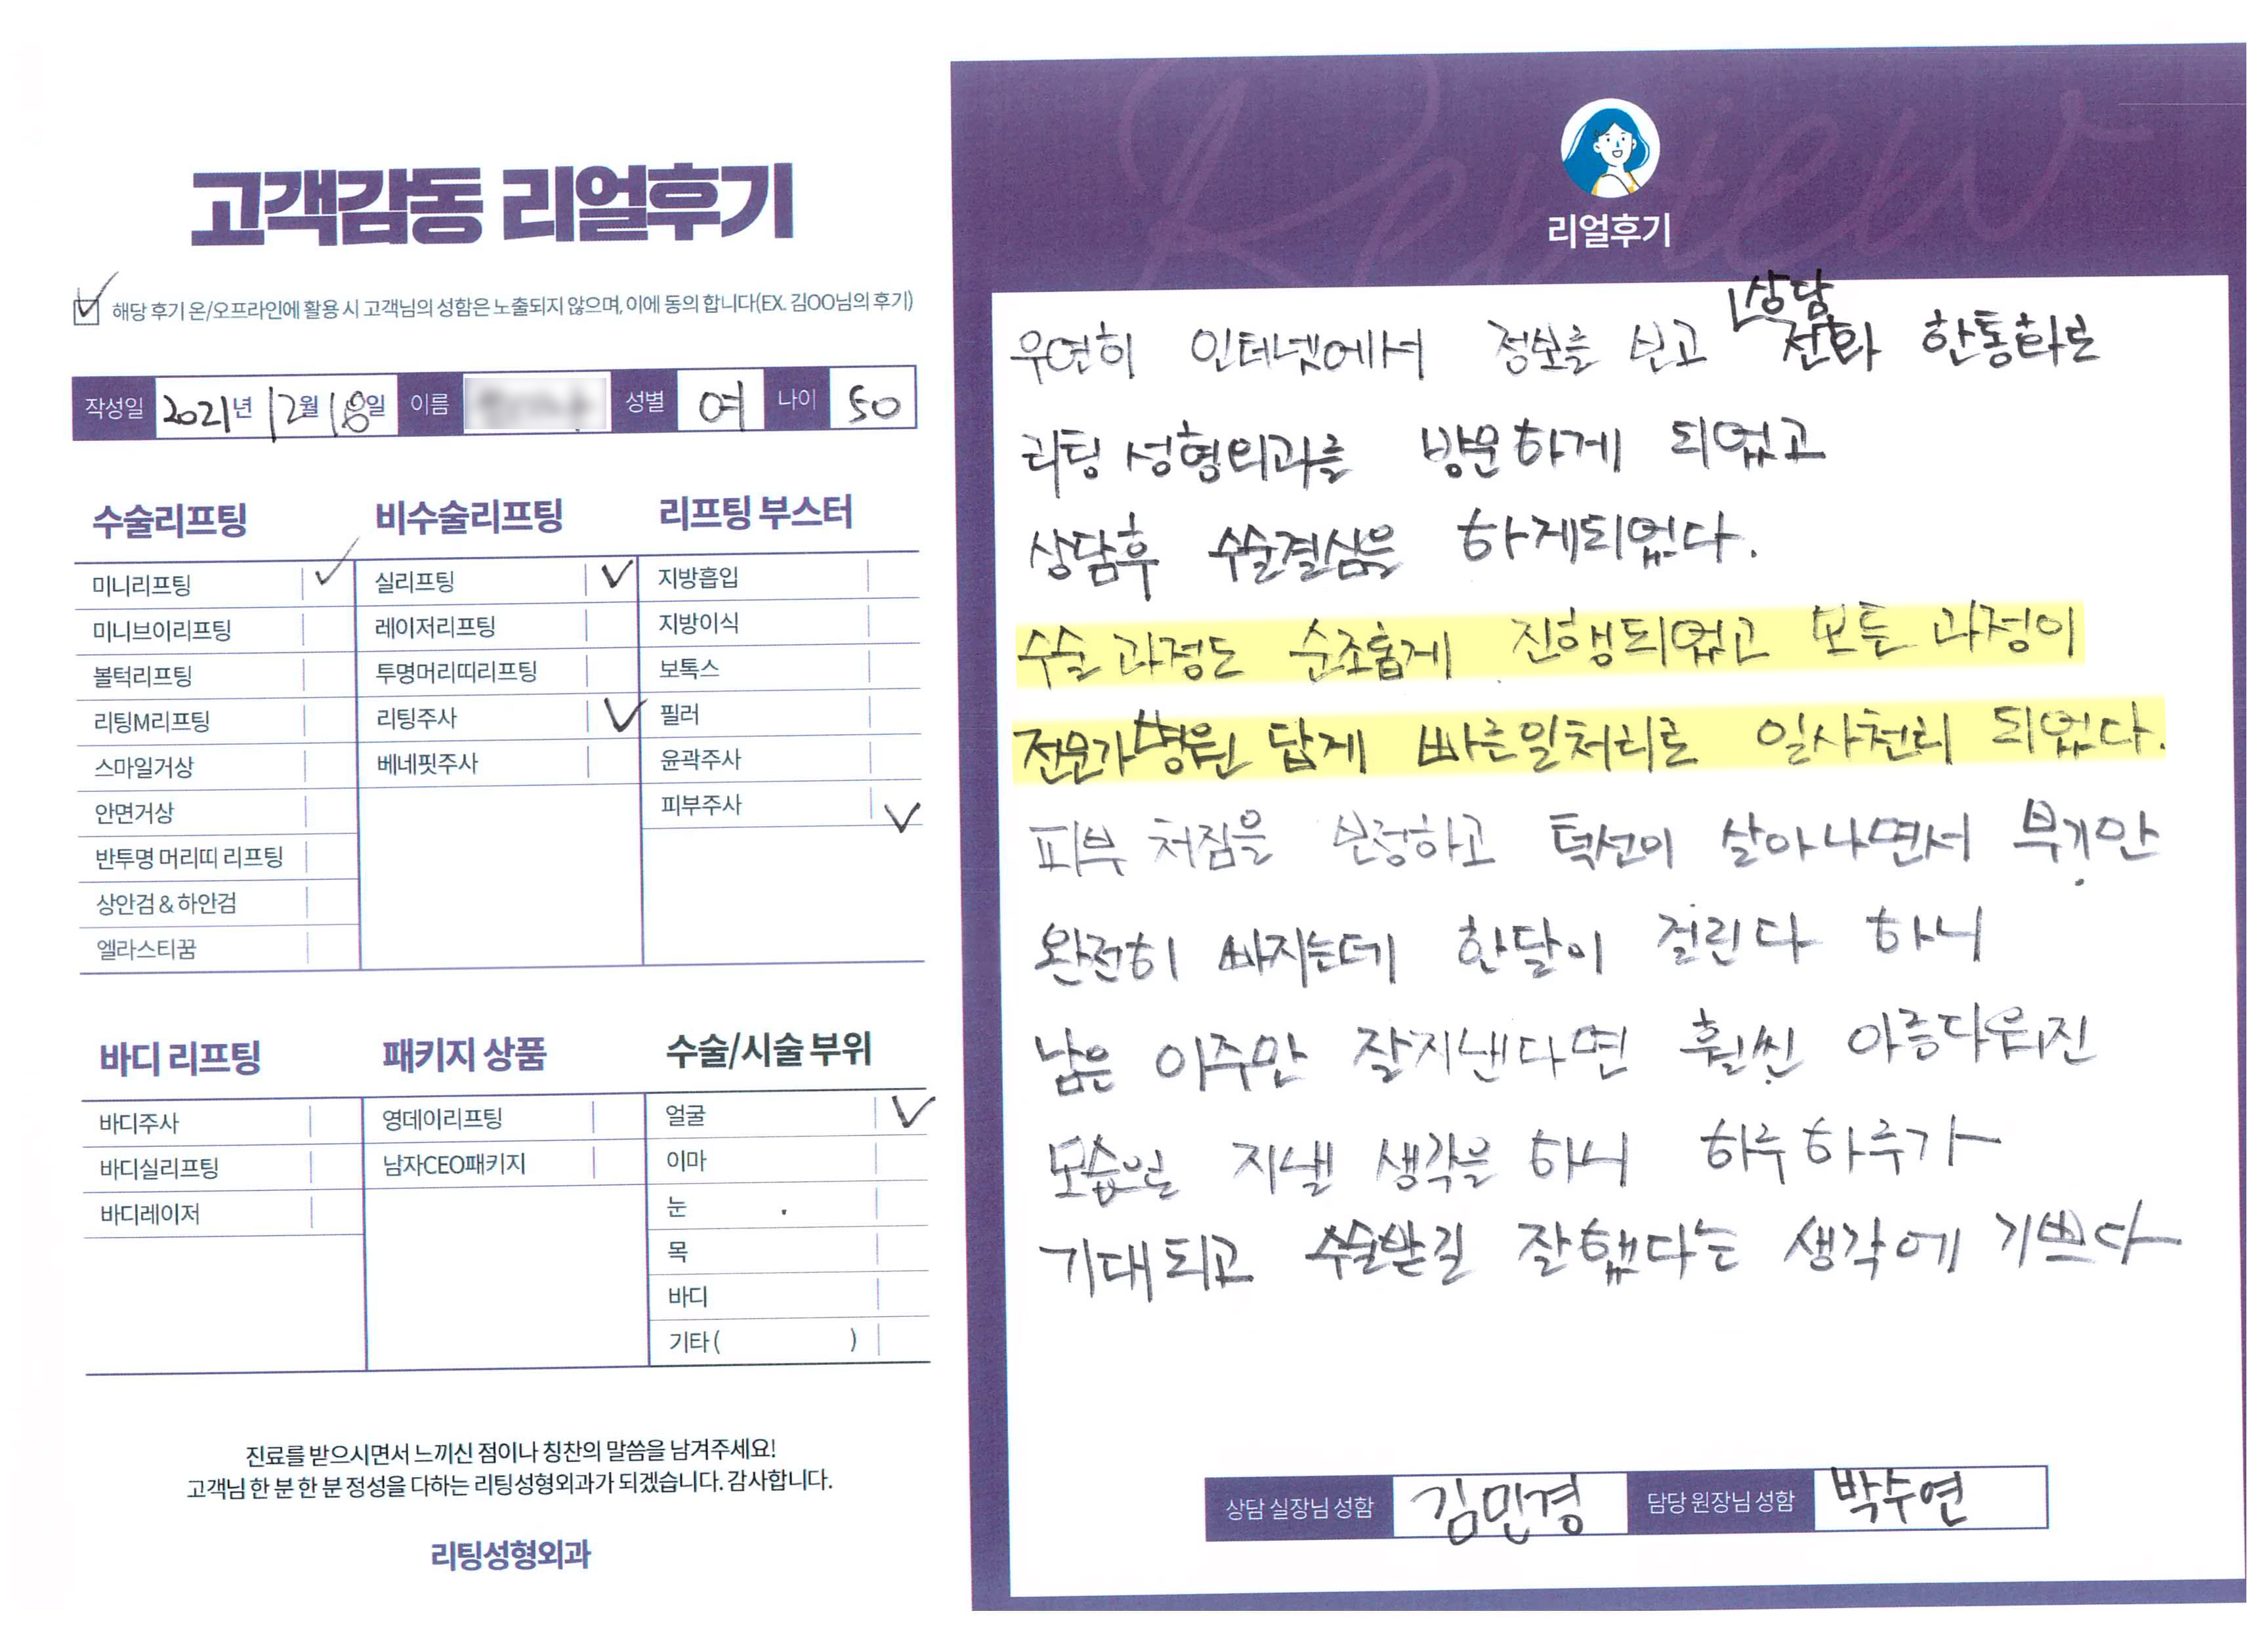 고객감동 리얼후기
해당 후기 온/오프라인에 활용 시 고객님의 성함은 노출되지 않으며, 이에 동의 합니다(EX. 김OO님의 후기)
작성일 2021년 12월 18일 이름 성별 여 나이 50
수술리프팅
미니리프팅
미니브이리프팅
볼턱리프팅
리팅M리프팅
스마일거상
안면거상
반투명 머리띠 리프팅
상안검 & 하안검
엘라스티꿈
비수술리프팅
실리프팅
레이저리프팅
투명머리띠리프팅
리팅주사
베네핏주사
리프팅 부스터
지방흡입
지방이식
보톡스
필러
윤곽주사
피부주사
바디 리프팅
바디주사
바디실리프팅
바디레이저
패키지 상품
영데이리프팅
남자CEO패키지
수술/시술 부위
얼굴
이마
눈
목
바디
기타 ( )
진료를 받으시면서 느끼신 점이나 칭찬의 말씀을 남겨주세요!
고객님 한 분 한 분 정성을 다하는 리팅성형외과가 되겠습니다. 감사합니다.
리팅성형외과
Review
리얼후기
우연히 인터넷에서 정보를 보고 상담 전화 한통화로
리팅 성형외과를 방문하게 되었고
상담후 수술결심을 하게되었다.
수술 과정도 순조롭게 진행되었고 모든 과정이
전문가병원 답게 빠른일처리로 일사천리 되었다.
피부 처짐을 보정하고 턱선이 살아나면서 부기만
완전히 빠지는데 한달이 걸린다 하니
남은 이주만 잘지낸다면 훨씬 아름다워진
모습으로 지낼 생각을 하니 하루하루가
기대되고 수술받길 잘했다는 생각에 기쁘다
상담 실장님 성함 김민경 담당 원장님 성함 박수연